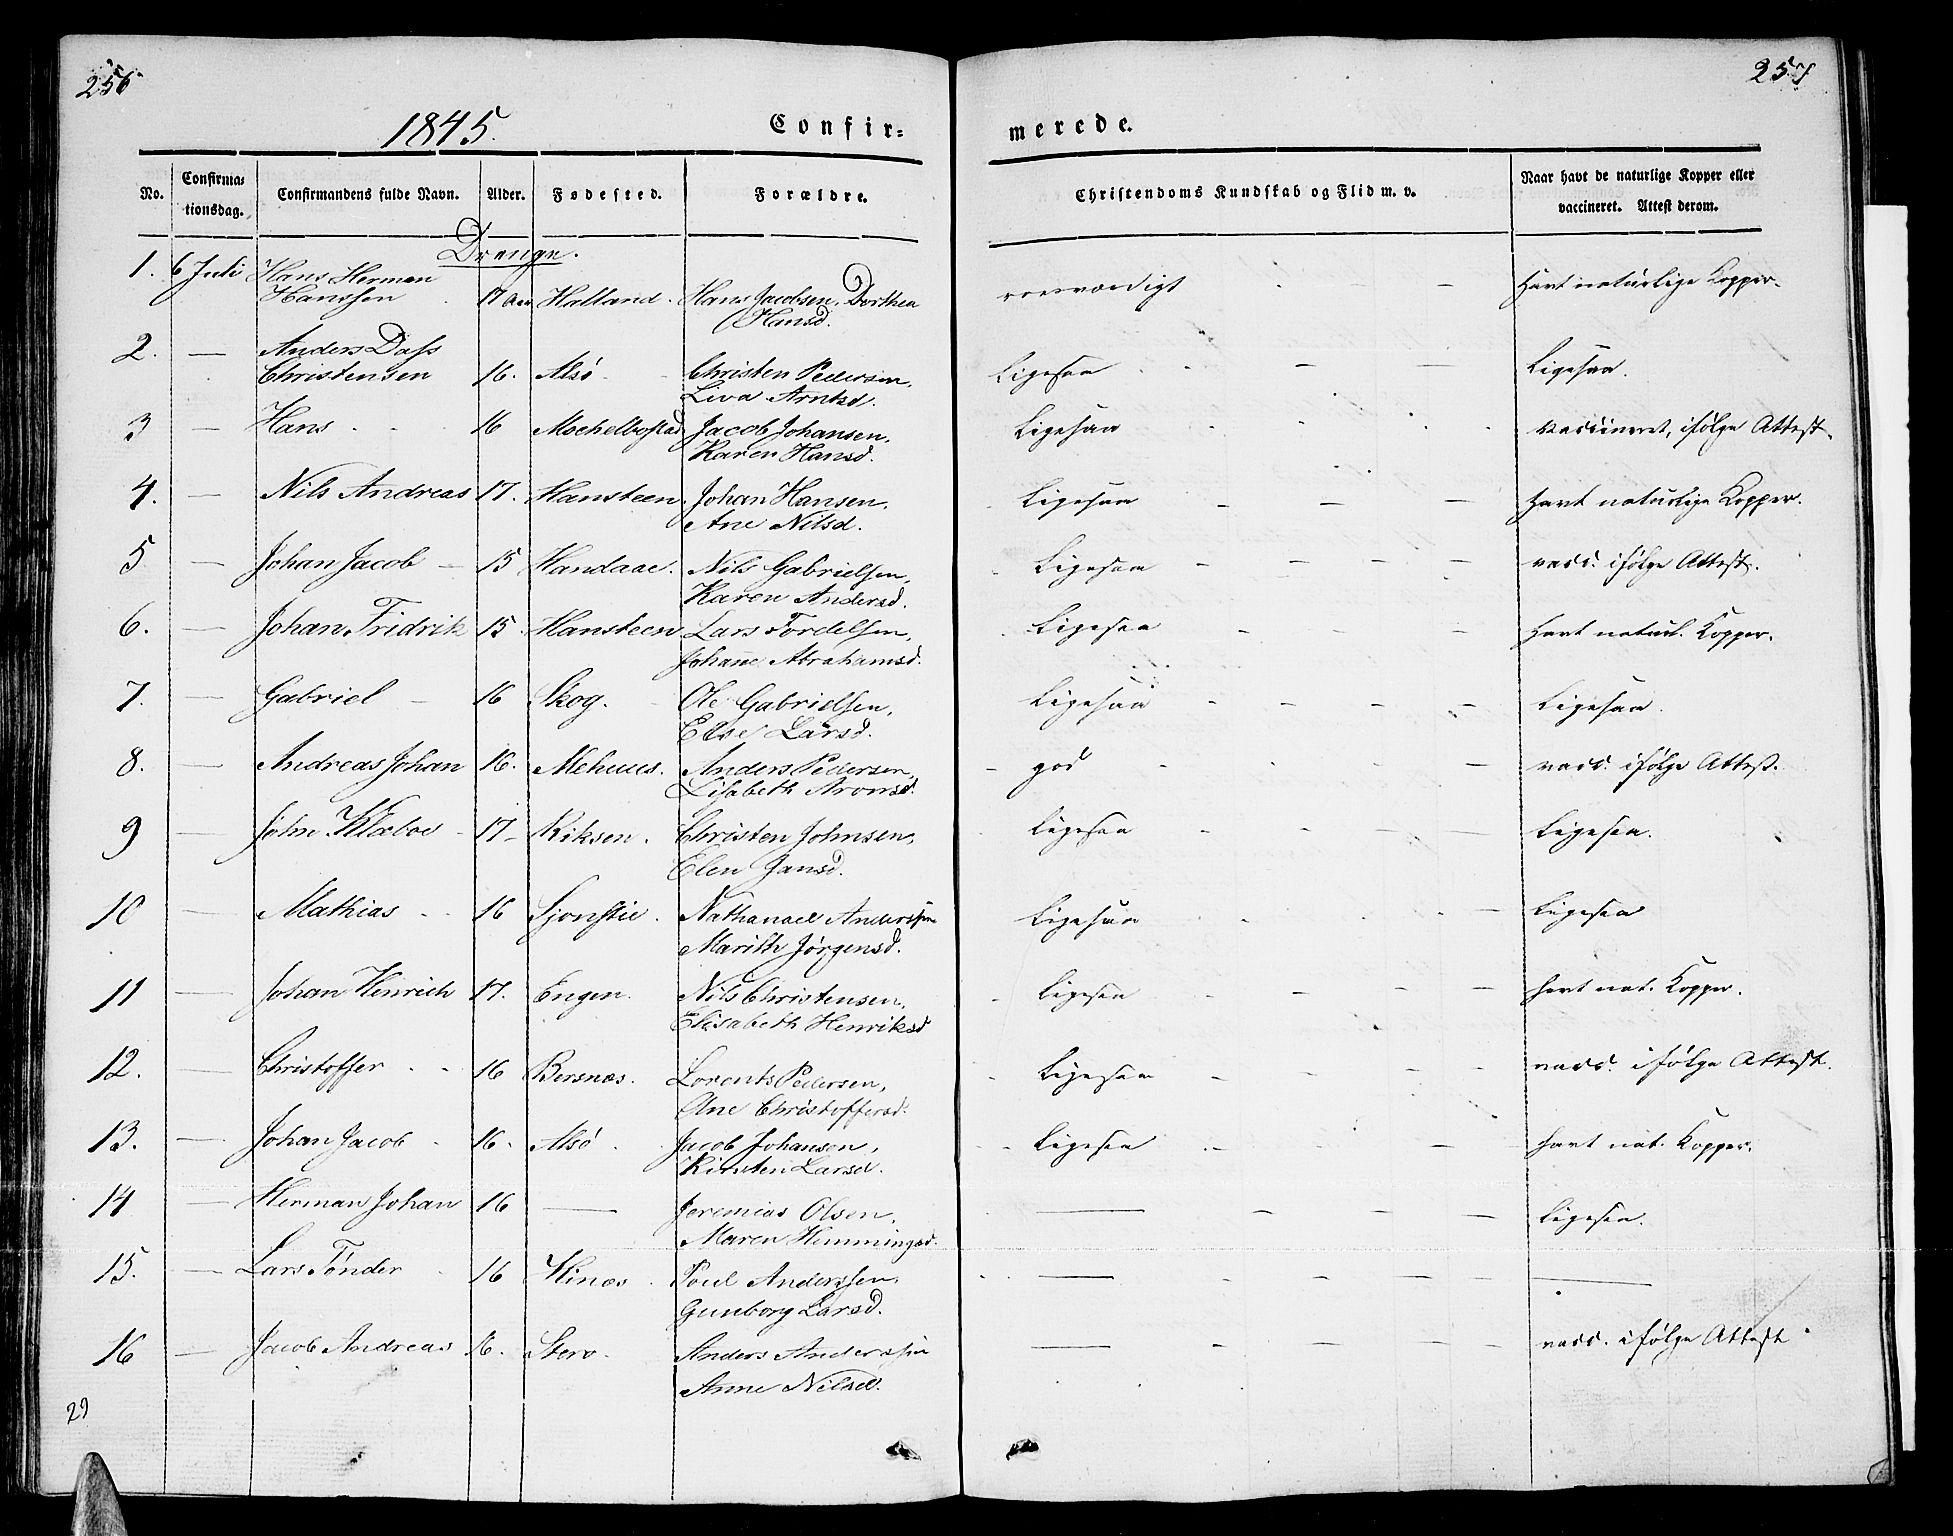 256
257
1845.
Confir=
merede.
No.
Confirma=
tionsdag.
Confirmandens fulde Navn.
Alder.
Fødested.
Forældre.
Christendoms Kundskab og Flid m. v.
Naar havt de naturlige Kopper eller
vaccineret. Attest derom.
Drenge.
1. 6 Juli Hans Herman
Hanssen 17 Aar Halland. Hans Jacobsen, Dorthea
Hansd. roesværdigt - - havt naturlige Kopper.
2. — Anders Dass
Christensen 16. Alsö - Christen Pedersen,
Liva Arntsd. Ligesaa - - - Ligesaa.
3 — Hans 16 Jacob Johansen,
Karen Hansd. Ligesaa vaccineret, ifölge Attest.
4. — Nils Andreas 17. Hansteen. Johan Hansen,
Ane Nilsd. Ligesaa - - - havt naturlige Kopper.
5 — Johan Jacob - 15 Handaae. Nils Gabrielsen,
Karen Andersd. Ligesaa - - - - vacc. ifölge Attest.
6. — Johan Fridrik 15. Hansteen Lars Tordelsen,
Johane Abrahamsd. Ligesaa - - - havt naturl. Kopper.
7. — Gabriel - 16 Skog. - Ole Gabrielsen,
Else Larsd. Ligesaa - - - - Ligesaa.
8. — Andreas Johan 16. Mehuus. Anders Pedersen,
Lisabeth Aronsd. - god - - - vacc. ifölge Attest.
9 — John Klæboe - 17 - Riksen. Christen Johnsen,
Elen Jansd. Ligesaa - - - - Ligesaa.
10 — Mathias 16 Sjonstie. Nathanael Anderssen
Marith Jörgensd. Ligesaa - - Ligesaa
11 — Johan Hinrich 17. Engen. Nils Christensen,
Elisabeth Henriksd - Ligesaa - - - - havt nat. Kopper.
12. — Christoffer 16 Bersnæs. Lorents Pedersen,
Ane Christoffersd. - Ligesaa - - - - vacc. ifölge Attest.
13. — Johan Jacob 16. Alsö. Jacob Johansen,
Kirsten Larsd. - Ligesaa - - - havt nat. Kopper.
14 — Herman Johan 16 — Jeremias Olsen,
Maren Hemmingsd. — - - - Ligesaa.
15. — Lars Tönder 16 Kinæs. Poul Anderssen,
Gunborg Larsd. — - - - —
16 — Jacob Andreas 16. Anders Anderssen
Anne Nilsd. — - - - vacc. ifölge Attest
29